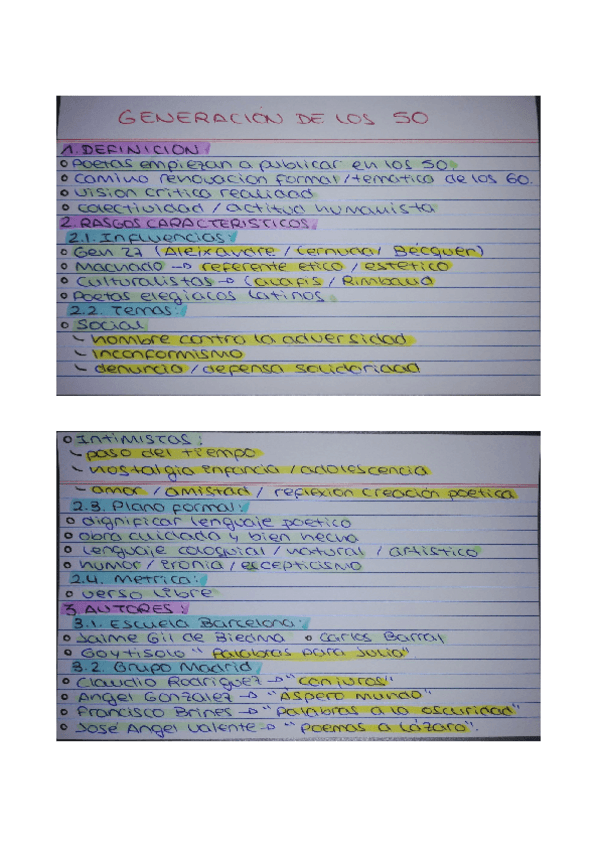 GENERACIÓN DE LOS 50
1. DEFINICIÓN
Poetas empiezan a publicar en los 50.
Camino renovación formal/temático de los 60.
Visión crítica realidad
Colectividad / actitud humanista
2. RASGOS CARACTERÍSTICOS
2.1. Influencias:
Gen 27 (Aleixandre / Cernuda / Bécquer)
Machado → referente ético / estético
Culturalistas → Cavafis / Rimbaud
Poetas elegíacos latinos.
2.2. Temas:
Social
- hombre contra la adversidad
- inconformismo
- denuncia / defensa solidaridad
Intimistas:
- paso del tiempo
- nostalgia infancia / adolescencia
- amor / amistad / reflexión creación poética
2.3. Plano formal:
dignificar lenguaje poético
obra cuidada y bien hecha
lenguaje coloquial / natural / artístico
humor / ironía / escepticismo
2.4. Métrica:
verso libre
3. AUTORES:
3.1. Escuela Barcelona:
Jaime Gil de Biedma Carlos Barral
Goytisolo "Palabras para Julia"
3.2. Grupo Madrid
Claudio Rodríguez → "Conjuros"
Ángel González → "Áspero mundo"
Francisco Brines → "Palabras a la oscuridad"
José Ángel Valente → "Poemas a Lázaro".